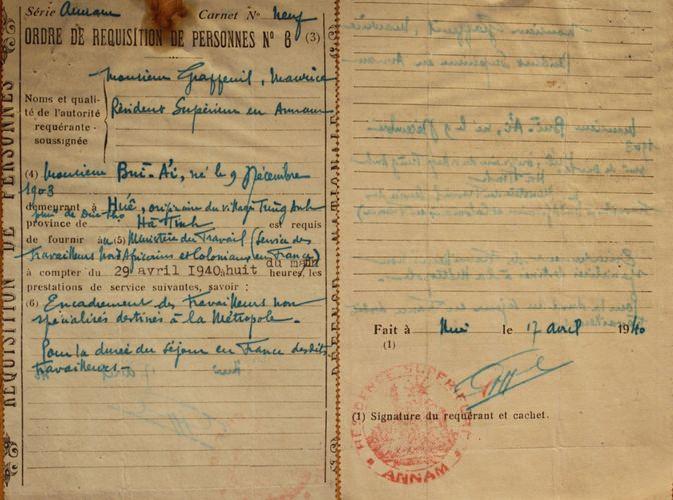 Série Annam Carnet Nº neuf
ORDRE DE REQUISITION DE PERSONNES Nº 6 (3)
REQUISITION DE PERSONNES
Monsieur Graffeuil, Maurice
Noms et quali-
té de l'autorité
requérante -
soussignée
Résident Supérieur en Annam
(4) Monsieur Bui-Ai, né le 9 Décembre
1903
demeurant à Hué, originaire du village Trung Anh
province de Ha Tinh est requis
de fournir au (5) Ministère du Travail (Service des
travailleurs Nord Africains et Coloniaux en France)
du matin
à compter du 29 avril 1940 à huit heures, les
prestations de service suivantes, savoir :
(6) Encadrement des travailleurs non
spécialisés destinés à la Métropole.
Pour la durée du séjour en France desdits
travailleurs.-
Fait à Hué le 17 avril 1940
(1)
(1) Signature du requérant et cachet.
RESIDENCE SUPERIEURE
ANNAM